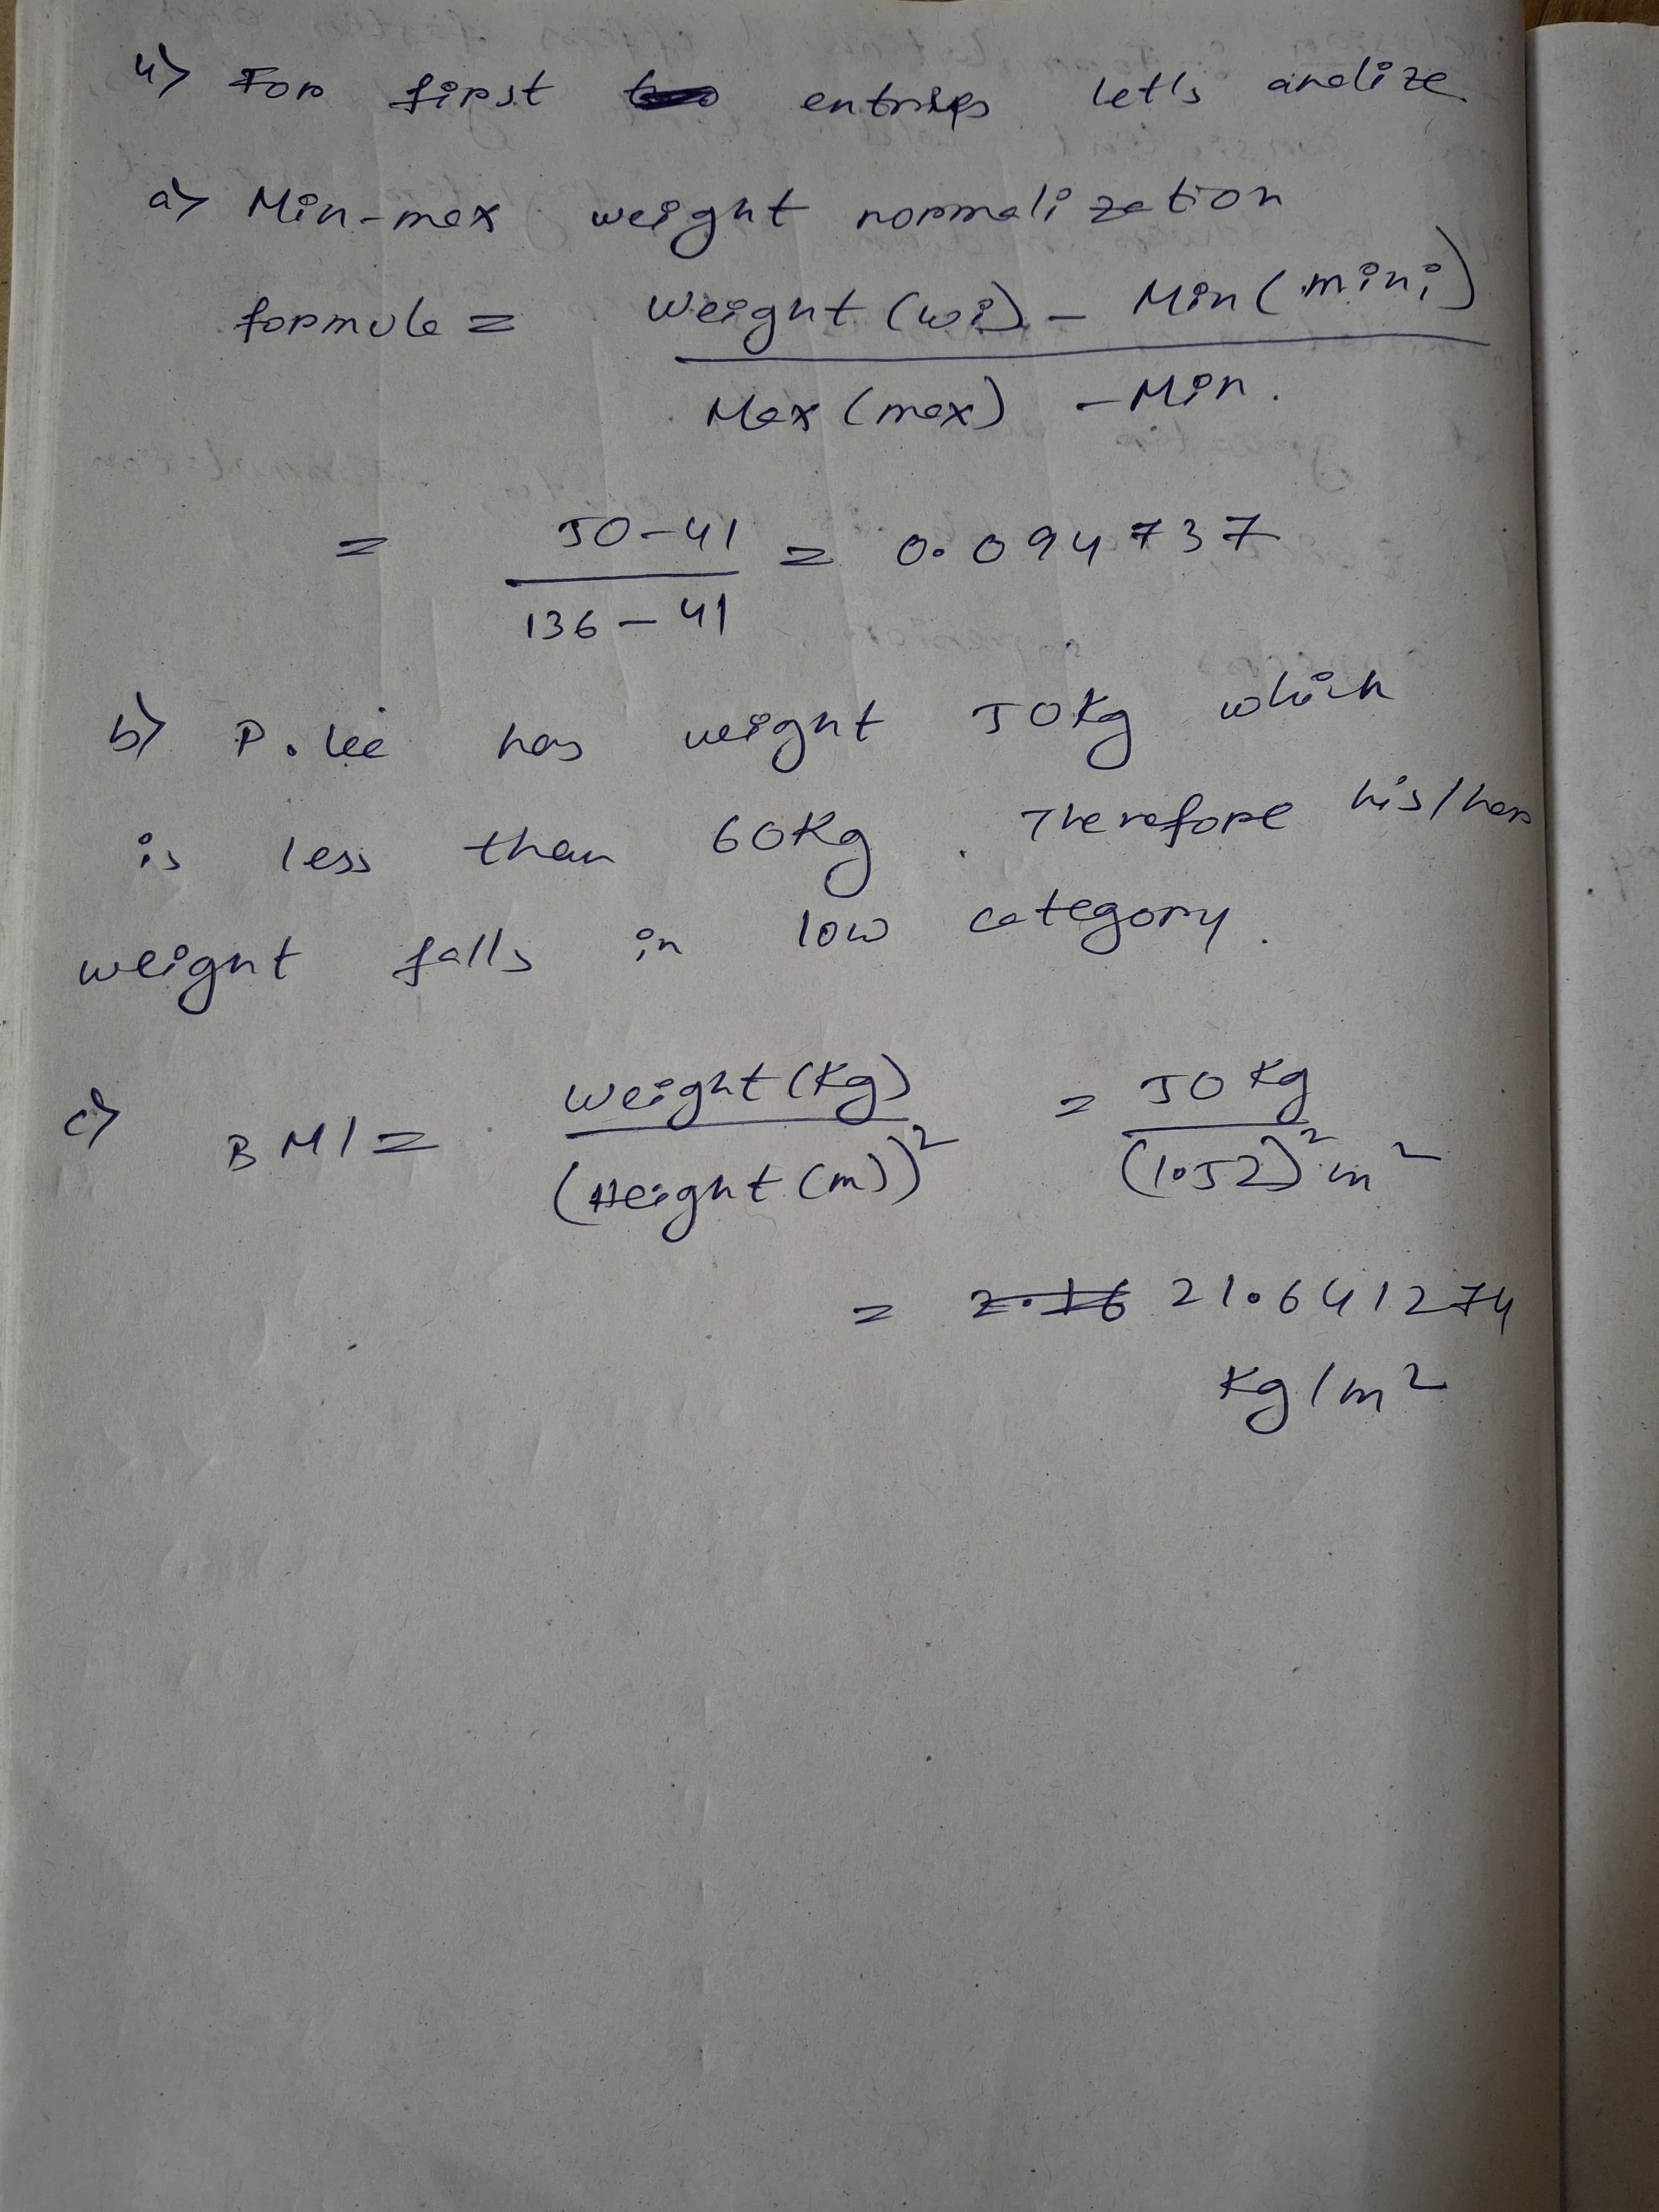 4) For first entries let's analize
a) Min-max weight normalization
formula = Weight (wi) - Min (mini)
Max (max) - Min.
= 50-41 = 0.094737
136-41
b) P. Lee has weight 50Kg which
is less than 60Kg. Therefore his/her
weight falls in low category.
c) BMI = Weight (Kg) = 50 Kg
(Height (m))² (1.52)² m²
= 2.16 21.641274
Kg/m²